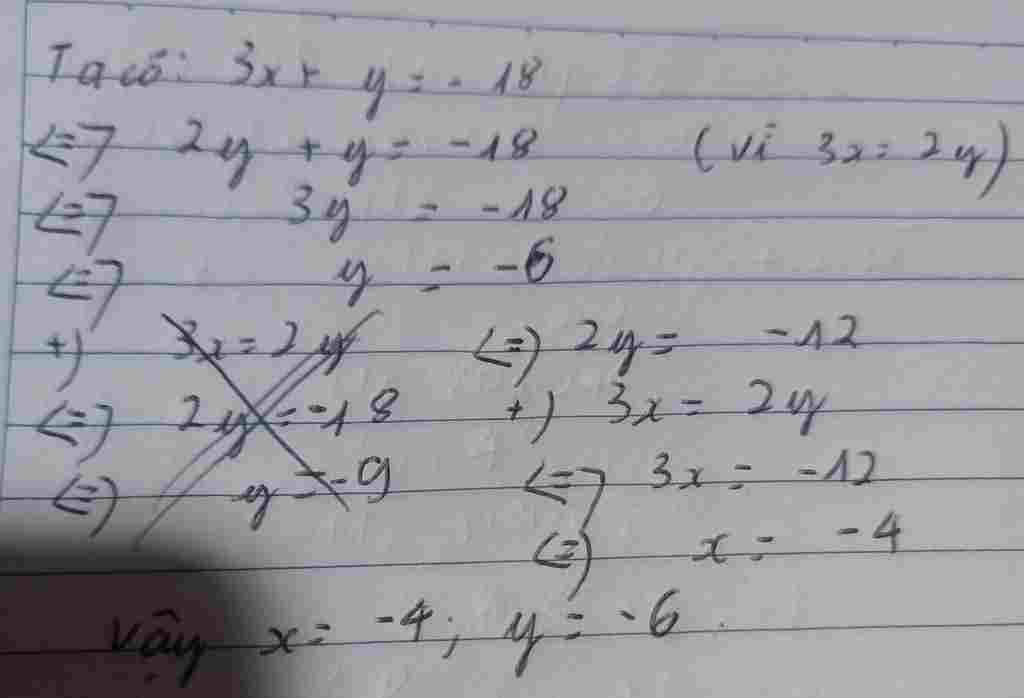 Ta có: 3x + y = -18
<=> 2y + y = -18 (vì 3x = 2y)
<=> 3y = -18
<=> y = -6
+) 3x = 2y <=> 2y = -12
<=> 2y = -18 +) 3x = 2y
<=> y = -9 <=> 3x = -12
<=> x = -4
Vậy x = -4; y = -6.